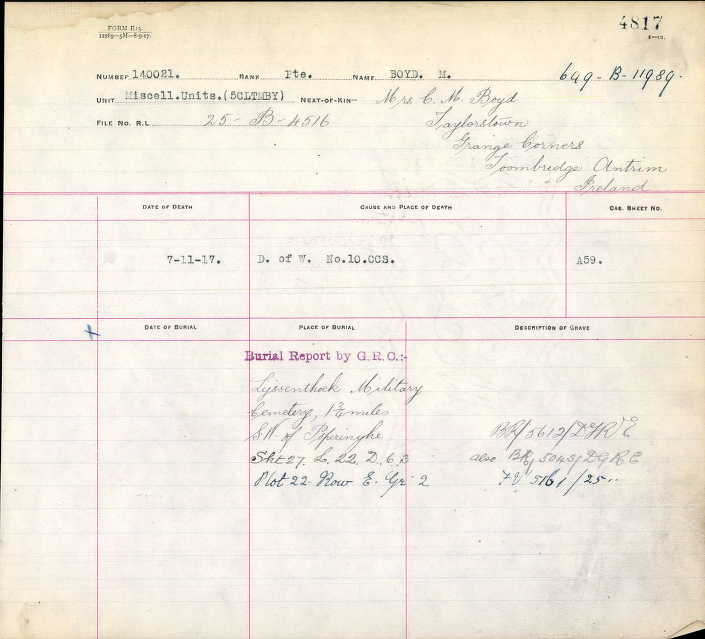 FORM R15.
12269—5M—8-9-17.
4817
NUMBER 140021. RANK Pte. NAME BOYD. M. 649-B-11989.
UNIT Miscell.Units.(5CLTMBY) NEXT-OF-KIN— Mrs C. M. Boyd
FILE NO. R.L. 25-B-4516 Taylorstown
Grange Corners
Toombridge Antrim
Ireland
DATE OF DEATH CAUSE AND PLACE OF DEATH CAS. SHEET NO.
7-11-17. D. of W. No.10.CCS. A59.
x DATE OF BURIAL PLACE OF BURIAL DESCRIPTION OF GRAVE
Burial Report by G.R.O.:-
Lijssenthoek Military
Cemetery, 1¾ miles
S.W. of Poperinghe
Sht 27. L. 22. D. 6.3
also
Plot 22 Row E. Gr 2